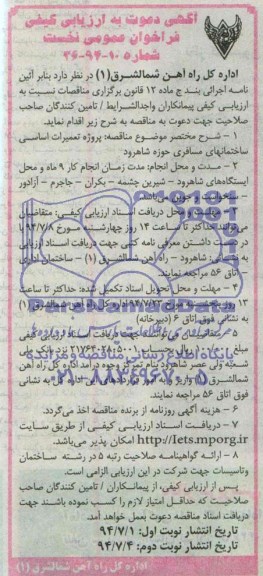 آگهی دعوت به ارزیابی کیفی
فراخوان عمومی نخست
شماره ۱۰-۹۴-۳۶
اداره کل راه آهن شمالشرق(۱) در نظر دارد بنابر آئین
نامه اجرائی بند ج ماده ۱۲ قانون برگزاری مناقصات نسبت به
ارزیابی کیفی پیمانکاران واجدالشرایط / تامین کنندگان صاحب
صلاحیت جهت دعوت به مناقصه به شرح زیر اقدام نماید.
۱ - شرح مختصر موضوع مناقصه: پروژه تعمیرات اساسی
ساختمانهای مسافری حوزه شاهرود
۲ - مدت و محل انجام: مدت زمان انجام کار ۹ ماه و محل
ایستگاههای شاهرود - شیرین چشمه - بکران - جاجرم - آزادور
- سنخواست و جوین می‌باشد.
۳ - مهلت و محل دریافت اسناد ارزیابی کیفی: متقاضیان
می‌توانند حداکثر تا ساعت ۱۴ روز چهارشنبه مورخ ۹۴/۷/۸ با
در دست داشتن معرفی نامه کتبی جهت دریافت اسناد ارزیابی
به نشانی: شاهرود - راه آهن شمالشرق (۱) - ساختمان اداری
اتاق ۵۶ مراجعه نمایند.
۴ - مهلت و محل تحویل اسناد تکمیل شده: حداکثر تا ساعت
۱۳ روز مورخ ۹۴/۷/۲۳ اداره کل راه آهن شمالشرق (۱)
به نشانی فوق اتاق ۶ (دبیرخانه)
۵ - متقاضیان می‌بایست جهت دریافت اسناد ارزیابی کیفی
مبلغ ریال به حساب نزد بانک ملی
شاهرود بنام تمرکز وجوه درآمد اداره کل راه آهن
شمالشرق (۱) واریز و به نشانی
فوق اتاق ۵۶ مراجعه نمایند.
۶ - هزینه آگهی روزنامه از برنده مناقصه اخذ می‌گردد.
۷ - دریافت اسناد ارزیابی کیفی از طریق سایت
http://Iets.mporg.ir امکان پذیر می‌باشد.
۸ - ارائه گواهینامه صلاحیت رتبه ۵ در رشته ساختمان
وتاسیسات جهت شرکت در این ارزیابی الزامی است.
پس از ارزیابی کیفی، از پیمانکاران / تامین کنندگان صاحب
صلاحیت که حداقل امتیاز لازم را کسب نموده باشند جهت
دریافت اسناد مناقصه دعوت بعمل خواهد آمد.
تاریخ انتشار نوبت اول: ۹۴/۷/۱
تاریخ انتشار نوبت دوم: ۹۴/۷/۴
اداره کل راه آهن شمالشرق(۱)
ParsNamadData
پایگاه اطلاع رسانی مناقصه و مزایده
۰۲۱-۸۸۳۴۹۶۷۰-۵